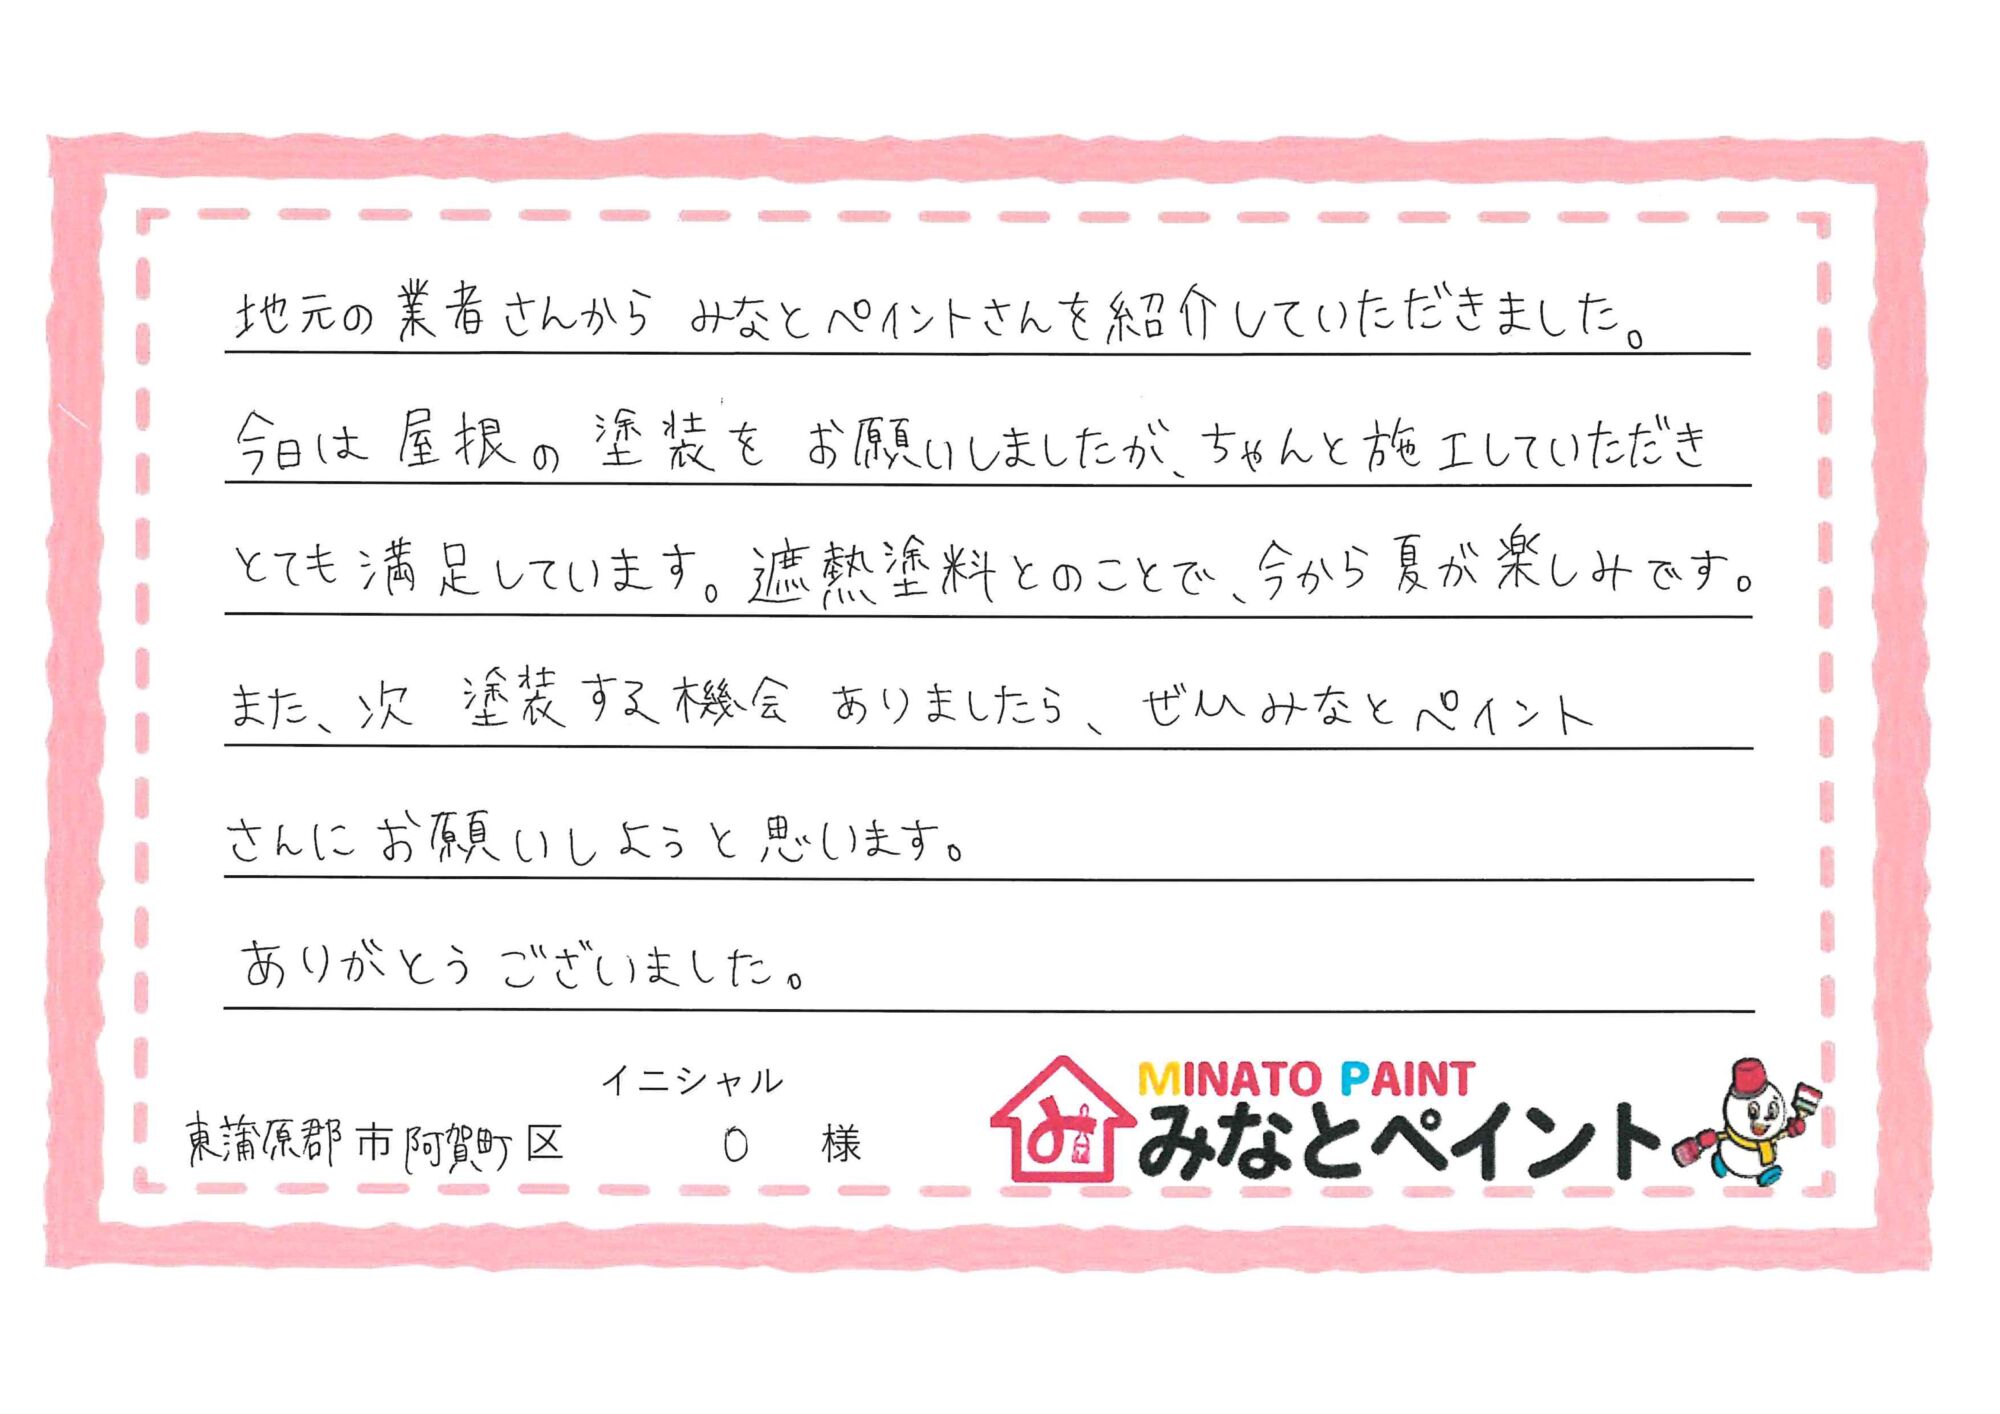 地元の業者さんから みなとペイントさんを紹介していただきました。
今日は屋根の塗装を お願いしましたが、ちゃんと施工していただき
とても満足しています。遮熱塗料とのことで、今から夏が楽しみです。
また、次 塗装する機会 ありましたら、ぜひみなとペイント
さんにお願いしようと思います。
ありがとうございました。
イニシャル
東蒲原郡市阿賀町区 O 様
MINATO PAINT
みなとペイント